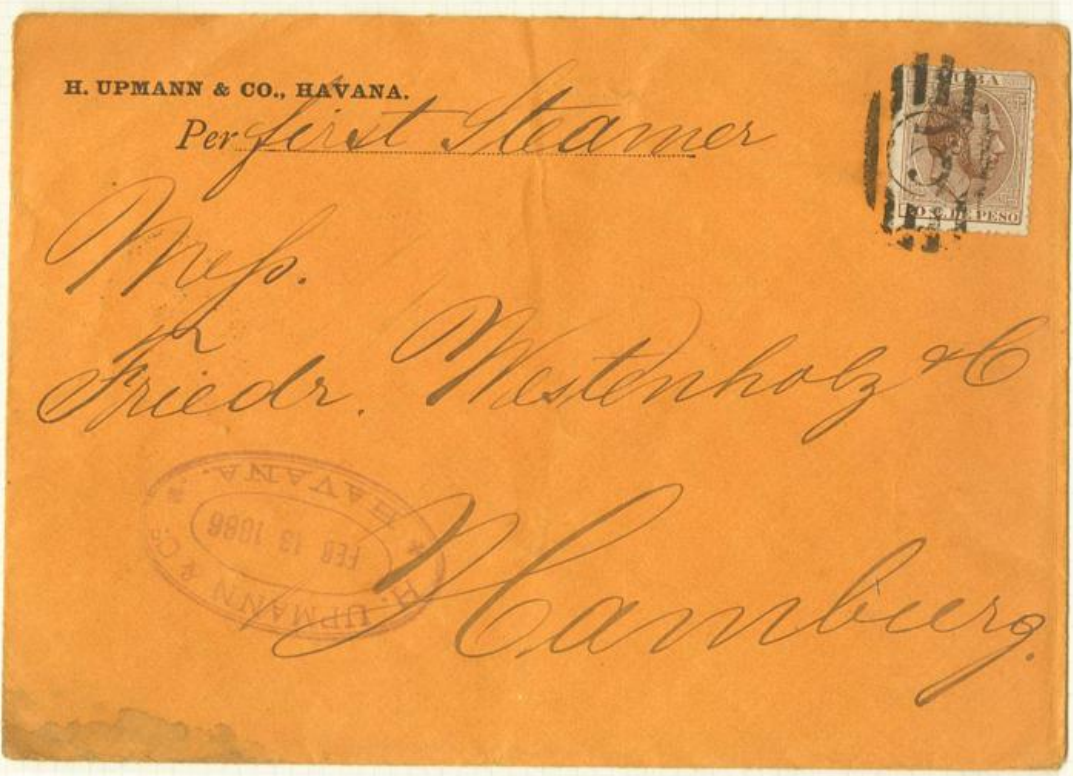 H. UPMANN & CO., HAVANA.
Per first Steamer
CUBA
10 C. DE PESO
Mess.
Friedr. Westenholz & C
Hamburg.
H. UPMANN & Co. HAVANA.
FEB 13 1886